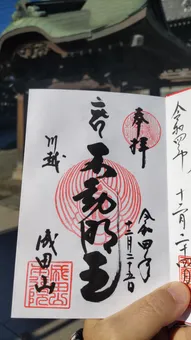 奉拝
令和四年
十二月二十五日
不動明王
川越
成田山
令和四年
十二月二十五